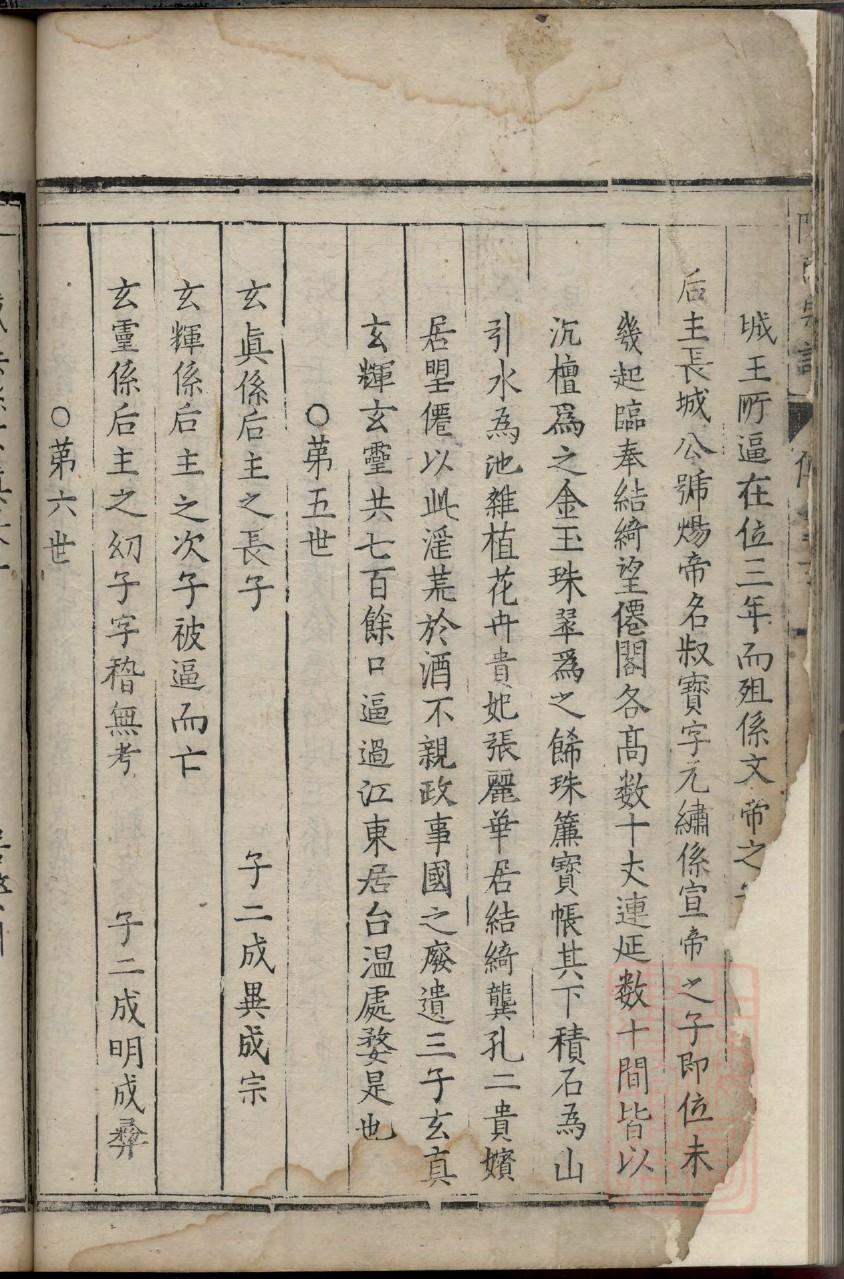 城王所逼在位三年而殂係文帝之
后主長城公號煬帝名叔寶字元繡係宣帝之子即位未
幾起臨奉結綺望僊閣各髙数十丈連延数十間皆以
沉檀爲之金玉珠翠爲之餙珠簾寶帳其下積石為山
引水為池雜植花卉貴妃張麗華居結綺龔孔二貴嬪
居朢僊以此淫荒於酒不親政事國之廢遺三子玄真
玄輝玄䨩共七百餘口逼過江東居台温處婺是也
○第五世
玄眞係后主之長子 子二成異成宗
玄輝係后主之次子被逼而亡
玄䨩係后主之㓜子字稽無考 子二成明成彛
○第六世